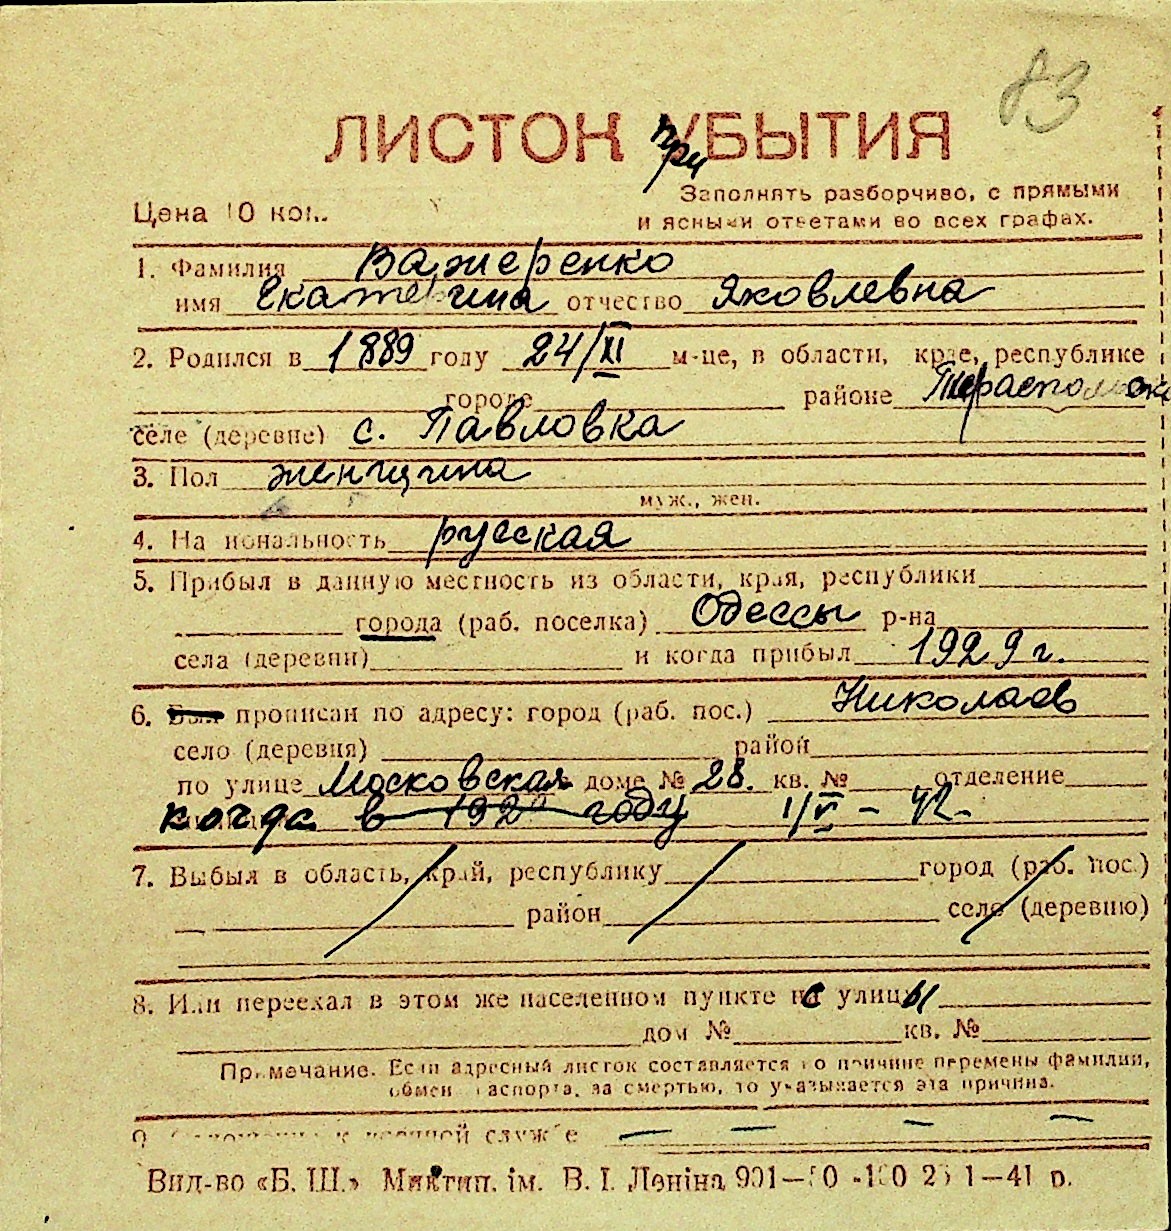 83
ЛИСТОК УБЫТИЯ
при
Заполнять разборчиво, с прямыми
Цена 10 коп.
и ясными ответами во всех графах.
1. Фамилия Важеренко
имя Екатерина отчество Яковлевна
2. Родился в 1889 году 24/XI м-це, в области, крае, республике
городе районе Тираспольск
селе (деревне) с. Павловка
3. Пол женщина
муж., жен.
4. Национальность русская
5. Прибыл в данную местность из области, края, республики
города (раб. поселка) Одессы р-на
села (деревни) и когда прибыл 1929 г.
6. Был прописан по адресу: город (раб. пос.) Николаев
село (деревня) район
по улице Московская доме № 28. кв. № отделение
когда в 192 году 1/V - 42.
7. Выбыл в область, край, республику город (раб. пос.)
район село (деревню)
8. Или переехал в этом же населенном пункте с улицы
дом № кв. №
Примечание. Если адресный листок составляется по причине перемены фамилии,
обмен паспорта, за смертью, то указывается эта причина.
9. к военной службе
Вид-во «Б. Ш.» Мик тип. ім. В. І. Леніна 901— 1—41 р.